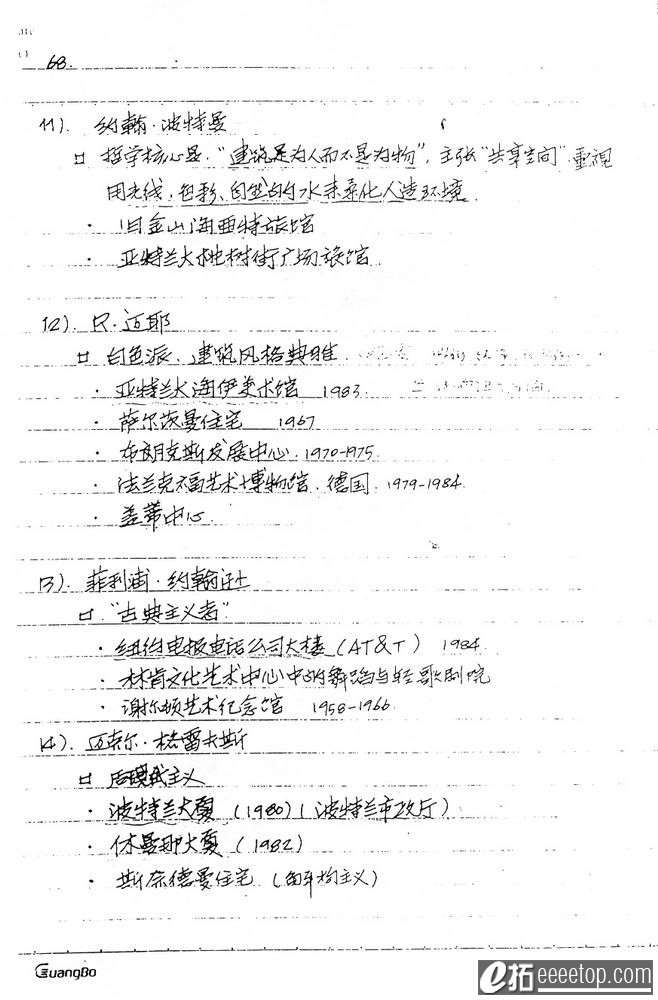 68.
11). 约翰·波特曼
□ 哲学核心是："建筑是为人而不是为物"，主张"共享空间"重视
用光线、色彩、自然的水来柔化人造环境.
· 旧金山海西特旅馆
· 亚特兰大桃树街广场旅馆
12). R.迈耶
□ 白色派. 建筑风格典雅
· 亚特兰大海伊美术馆 1983.
· 萨尔茨曼住宅 1967
· 布朗克斯发展中心. 1970-1975.
· 法兰克福艺术博物馆. 德国. 1979-1984.
· 盖蒂中心.
13). 菲利浦·约翰逊
□. "古典主义者"
· 纽约电报电话公司大楼 (AT&T) 1984.
· 林肯文化艺术中心中的舞蹈与轻歌剧院
· 谢尔顿艺术纪念馆 1958-1966.
14). 迈克尔·格雷夫斯
□ 后现代主义
· 波特兰大厦 (1980) (波特兰市政厅)
· 休曼那大厦 (1982)
· 斯奈德曼住宅
GuangBo
e拓eeeetop.com